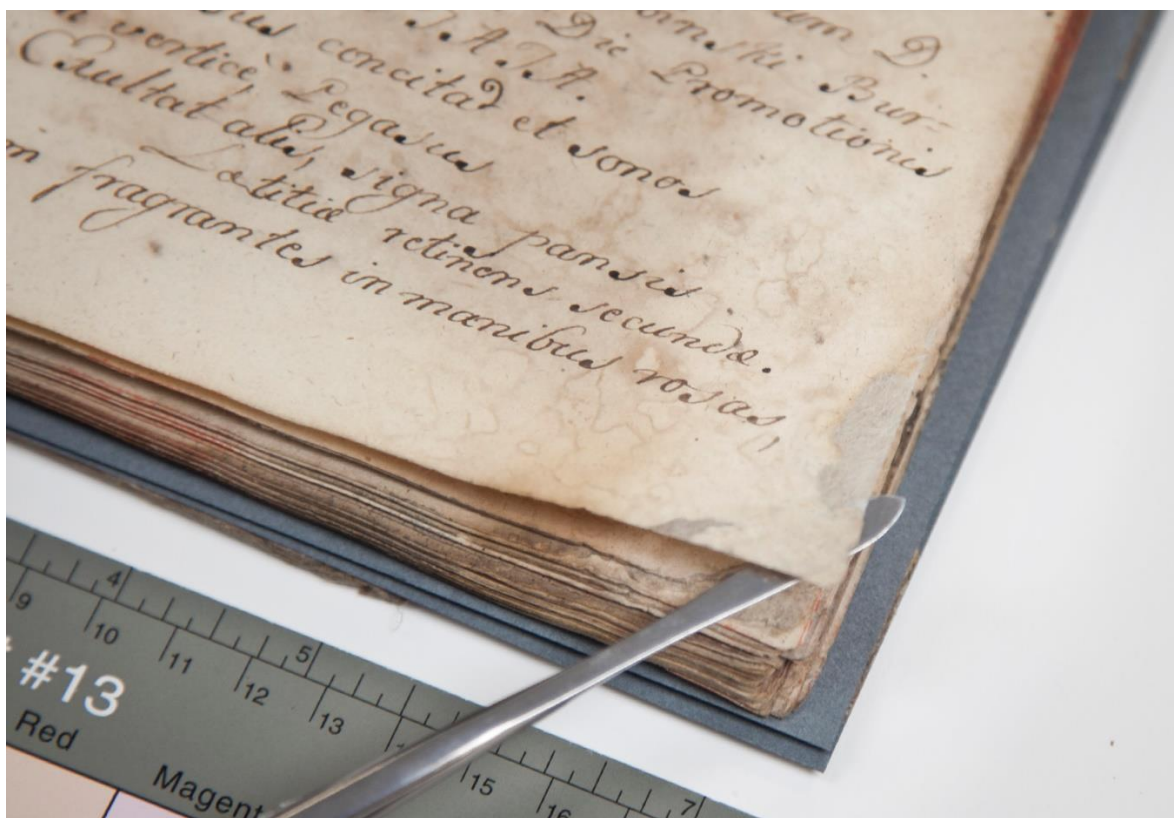 um D.
inski Bur-
Die Promotionis
I. A. J. A.
us concitat et sonos
vertice Pegasus
Exultat alis, signa pansis
Lætitiæ retinens secundæ.
fragrantes in manibus rosas,
4 5 7
9 10 11 12 13 15 16
#13
Red
Magent